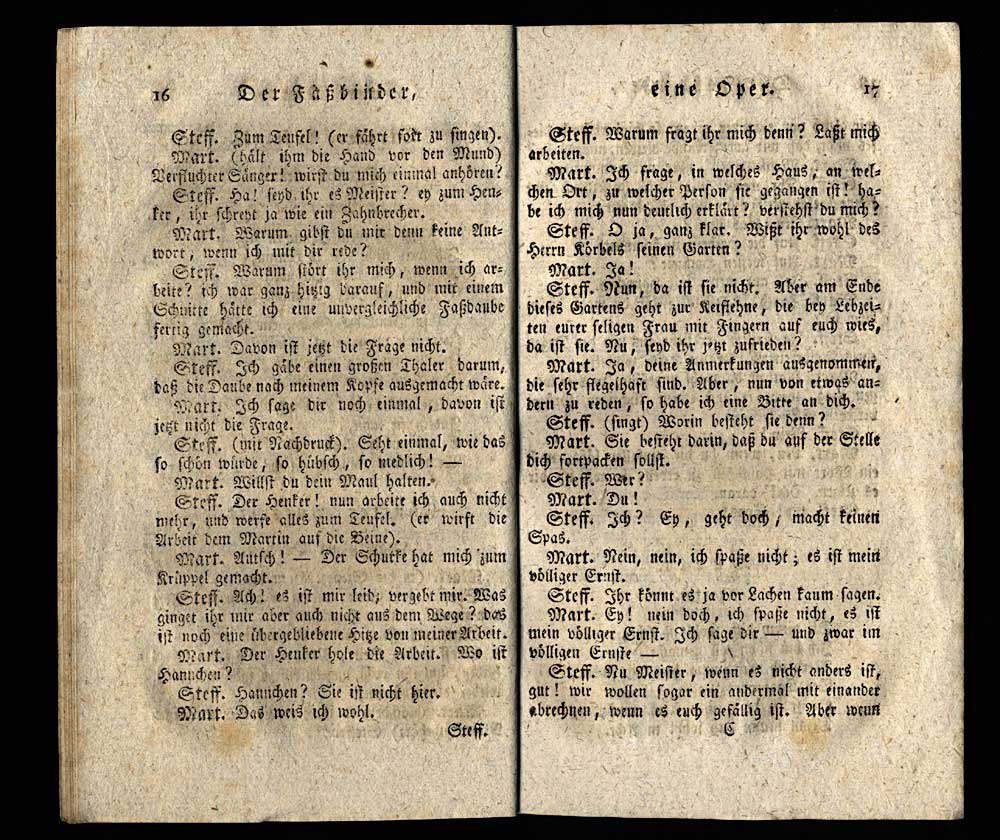 16 Der Fäßbinder,
Steff. Zum Teufel! (er fährt fort zu singen).
Mart. (hält ihm die Hand vor den Mund)
Verfluchter Sänger! wirst du mich einmal anhören?
Steff. Ha! seyd ihr es Meister? ey zum Hen-
ker, ihr schreyt ja wie ein Zahnbrecher.
Mart. Warum gibst du mir denn keine Ant-
wort, wenn ich mit dir rede?
Steff. Warum stört ihr mich, wenn ich ar-
beite? ich war ganz hitzig darauf, und mit einem
Schnitte hätte ich eine unvergleichliche Faßdaube
fertig gemacht.
Mart. Davon ist jetzt die Frage nicht.
Steff. Ich gäbe einen großen Thaler darum,
daß die Daube nach meinem Kopfe ausgemacht wäre.
Mart. Ich sage dir noch einmal, davon ist
jetzt nicht die Frage.
Steff. (mit Nachdruck). Seht einmal, wie das
so schön würde, so hübsch, so niedlich! —
Mart. Willst du dein Maul halten.
Steff. Der Henker! nun arbeite ich auch nicht
mehr, und werfe alles zum Teufel. (er wirft die
Arbeit dem Martin auf die Beine).
Mart. Autsch! — Der Schurke hat mich zum
Krüppel gemacht.
Steff. Ach! es ist mir leid, vergebt mir. Was
ginget ihr mir aber auch nicht aus dem Wege? das
ist noch eine übergebliebene Hitze von meiner Arbeit.
Mart. Der Henker hole die Arbeit. Wo ist
Hannchen?
Steff. Hannchen? Sie ist nicht hier.
Mart. Das weis ich wohl.
Steff.
eine Oper. 17
Steff. Warum fragt ihr mich denn? Laßt mich
arbeiten.
Mart. Ich frage, in welches Haus, an wel-
chen Ort, zu welcher Person sie gegangen ist! ha-
be ich mich nun deutlich erklärt? verstehst du mich?
Steff. O ja, ganz klar. Wißt ihr wohl des
Herrn Körbels seinen Garten?
Mart. Ja!
Steff. Nun, da ist sie nicht. Aber am Ende
dieses Gartens geht zur Keiflehne, die bey Lebzei-
ten eurer seligen Frau mit Fingern auf euch wies,
da ist sie. Nu, seyd ihr jetzt zufrieden?
Mart. Ja, deine Anmerkungen ausgenommen,
die sehr flegelhaft sind. Aber, nun von etwas an-
dern zu reden, so habe ich eine Bitte an dich.
Steff. (singt) Worin besteht sie denn?
Mart. Sie besteht darin, daß du auf der Stelle
dich fortpacken sollst.
Steff. Wer?
Mart. Du!
Steff. Ich? Ey, geht doch, macht keinen
Spas.
Mart. Nein, nein, ich spaße nicht; es ist mein
völliger Ernst.
Steff. Ihr könnt es ja vor Lachen kaum sagen.
Mart. Ey! nein doch, ich spaße nicht, es ist
mein völliger Ernst. Ich sage dir — und zwar im
völligen Ernste —
Steff. Nu Meister, wenn es nicht anders ist,
gut! wir wollen sogar ein andermal mit einander
abrechnen, wenn es euch gefällig ist. Aber wenn
C